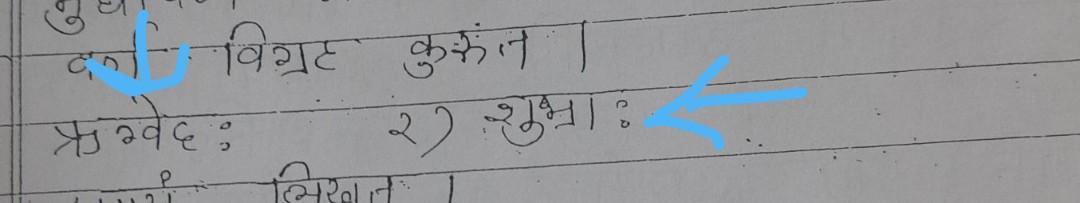 वर्ण विग्रह कुरूत ।
ऋग्वेदः २) शुभ्राः
लिखत ।